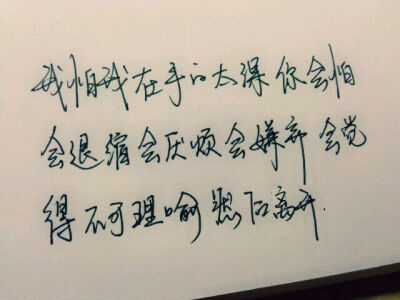 我怕我在乎的太深你会怕
会退缩会厌烦会嫌弃会觉
得不可理喻然后离开.